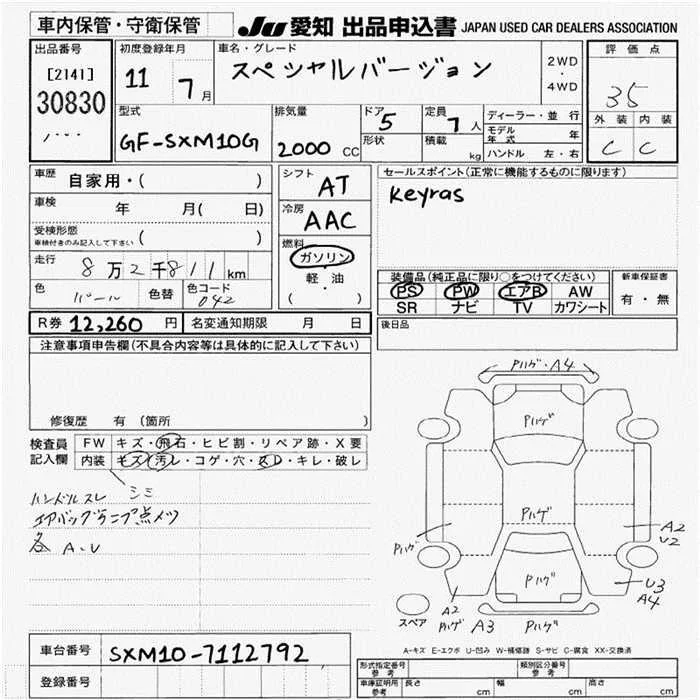 車内保管・守衛保管
JU 愛知 出品申込書 JAPAN USED CAR DEALERS ASSOCIATION
出品番号
[2141]
30830
初度登録年月
11 7月
車名・グレード
スペシャルバージョン
2WD
・
4WD
評価点
35
外装 内装
C C
型式
GF-SXM10G
排気量
2000 CC
ドア
5
形状
定員
7人
積載
kg
ディーラー・並行
モデル年式 年
ハンドル 左・右
車歴 自家用・( )
車検 年 月( 日)
受検形態
車検付きのみ記入して下さい ( )
走行 8万2千811km
色 パール 色替 色コード 042
シフト
AT
冷房
AAC
燃料
ガソリン
軽・油
( )
セールスポイント(正常に機能するものに限ります)
Keyras
装備品(純正品に限り○をつけてください)
PS PW エアB AW
SR ナビ TV カワシート
新車保証書
有・無
R券 12,260円 名変通知期限 月 日
後日品
注意事項申告欄(不具合内容等は具体的に記入して下さい)
修復歴 有 (箇所 )
検査員記入欄
FW キズ・飛石・ヒビ割・リペア跡・X要
内装 キズ・汚レ・コゲ・穴・スレ・キレ・破レ
シミ
ハンドルスレ
エアバッグランプ点メツ
各 A・U
Pハゲ・A4
Pハゲ
Pハゲ
Pハゲ
A2
U2
Pハゲ
U3
A4
A2
Pハゲ
A3
Pハゲ
スペア
A-キズ E-エクボ U-凹み W-補修跡 S-サビ C-腐食 XX-交換済
車台番号 SXM10-7112792
登録番号
形式指定番号 参考
類別区分番号 参考
車庫証明用 参考 長さ cm 幅 cm 高さ cm